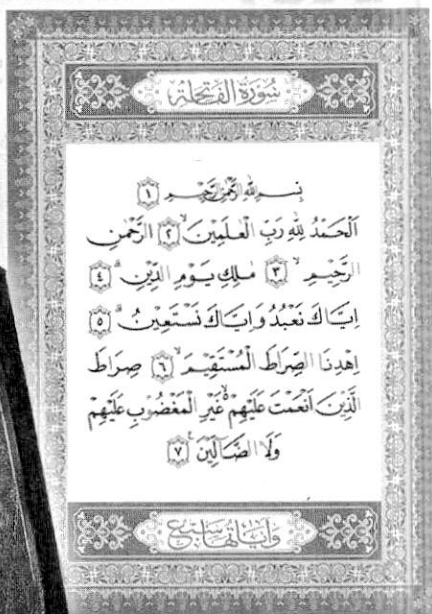 سُورَةُ الْفَاتِحَةِ
بِسْمِ اللهِ الرَّحْمٰنِ الرَّحِيْمِ ﴿١﴾
اَلْحَمْدُ لِلّٰهِ رَبِّ الْعٰلَمِيْنَۙ ﴿٢﴾ الرَّحْمٰنِ
الرَّحِيْمِۙ ﴿٣﴾ مٰلِكِ يَوْمِ الدِّيْنِۗ ﴿٤﴾
اِيَّاكَ نَعْبُدُ وَاِيَّاكَ نَسْتَعِيْنُۗ ﴿٥﴾
اِهْدِنَا الصِّرَاطَ الْمُسْتَقِيْمَۙ ﴿٦﴾ صِرَاطَ
الَّذِيْنَ اَنْعَمْتَ عَلَيْهِمْ ەۙ غَيْرِ الْمَغْضُوْبِ عَلَيْهِمْ
وَلَا الضَّاۤلِّيْنَ ﴿٧﴾
وَآيَاتُهَا سَبْعٌ